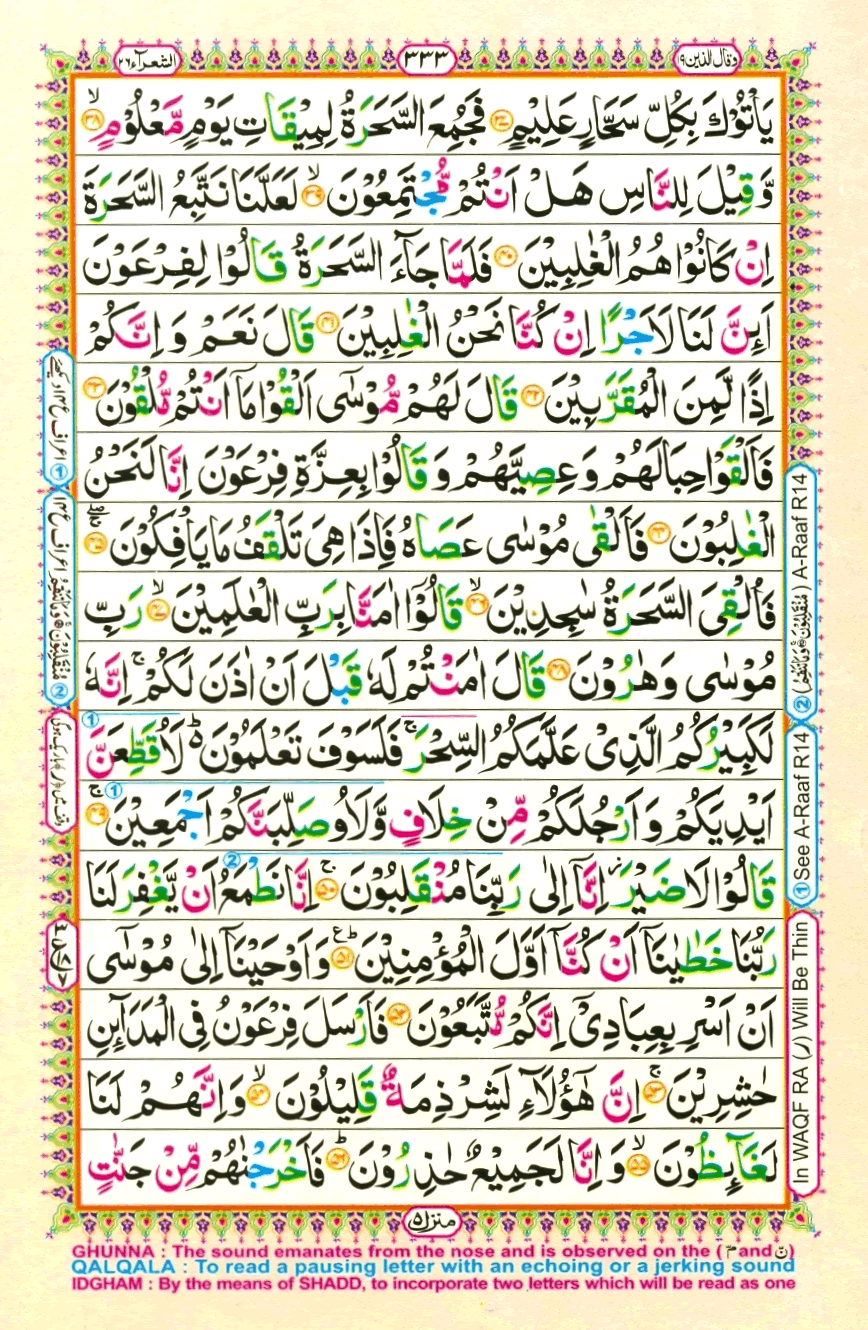 وقال الذین ۱۹
۳۳۳
الشعرآء ۲۶
يَاْتُوْكَ بِكُلِّ سَحَّارٍ عَلِيْمٍ ﴿۳۷﴾ فَجُمِعَ السَّحَرَةُ لِمِيْقَاتِ يَوْمٍ مَّعْلُوْمٍ ﴿۳۸﴾
وَّقِيْلَ لِلنَّاسِ هَلْ اَنْتُمْ مُّجْتَمِعُوْنَ ﴿۳۹﴾ لَعَلَّنَا نَتَّبِعُ السَّحَرَةَ
اِنْ كَانُوْا هُمُ الْغٰلِبِيْنَ ﴿۴۰﴾ فَلَمَّا جَآءَ السَّحَرَةُ قَالُوْا لِفِرْعَوْنَ
اَئِنَّ لَنَا لَاَجْرًا اِنْ كُنَّا نَحْنُ الْغٰلِبِيْنَ ﴿۴۱﴾ قَالَ نَعَمْ وَاِنَّكُمْ
اِذًا لَّمِنَ الْمُقَرَّبِيْنَ ﴿۴۲﴾ قَالَ لَهُمْ مُّوْسٰٓى اَلْقُوْا مَاۤ اَنْتُمْ مُّلْقُوْنَ ﴿۴۳﴾
فَاَلْقَوْا حِبَالَهُمْ وَعِصِيَّهُمْ وَقَالُوْا بِعِزَّةِ فِرْعَوْنَ اِنَّا لَنَحْنُ
الْغٰلِبُوْنَ ﴿۴۴﴾ فَاَلْقٰى مُوْسٰى عَصَاهُ فَاِذَا هِىَ تَلْقَفُ مَا يَاْفِكُوْنَ ﴿۴۵﴾
فَاُلْقِىَ السَّحَرَةُ سٰجِدِيْنَ ﴿۴۶﴾ قَالُوْٓا اٰمَنَّا بِرَبِّ الْعٰلَمِيْنَ ﴿۴۷﴾ رَبِّ
مُوْسٰى وَهٰرُوْنَ ﴿۴۸﴾ قَالَ اٰمَنْتُمْ لَهٗ قَبْلَ اَنْ اٰذَنَ لَكُمْ ۚ اِنَّهٗ
لَكَبِيْرُكُمُ الَّذِىْ عَلَّمَكُمُ السِّحْرَ ۚ فَلَسَوْفَ تَعْلَمُوْنَ ؕ لَاُقَطِّعَنَّ
اَيْدِيَكُمْ وَاَرْجُلَكُمْ مِّنْ خِلَافٍ وَّلَاُوصَلِّبَنَّكُمْ اَجْمَعِيْنَ ﴿۴۹﴾
قَالُوْا لَا ضَيْرَ اِنَّاۤ اِلٰى رَبِّنَا مُنْقَلِبُوْنَ ﴿۵۰﴾ اِنَّا نَطْمَعُ اَنْ يَّغْفِرَ لَنَا
رَبُّنَا خَطٰيٰنَاۤ اَنْ كُنَّاۤ اَوَّلَ الْمُؤْمِنِيْنَ ﴿۵۱﴾ وَاَوْحَيْنَاۤ اِلٰى مُوْسٰٓى
اَنْ اَسْرِ بِعِبَادِىْۤ اِنَّكُمْ مُّتَّبَعُوْنَ ﴿۵۲﴾ فَاَرْسَلَ فِرْعَوْنُ فِى الْمَدَآئِنِ
حٰشِرِيْنَ ﴿۵۳﴾ اِنَّ هٰٓؤُلَآءِ لَشِرْذِمَةٌ قَلِيْلُوْنَ ﴿۵۴﴾ وَاِنَّهُمْ لَنَا
لَغَآئِظُوْنَ ﴿۵۵﴾ وَاِنَّا لَجَمِيْعٌ حٰذِرُوْنَ ﴿۵۶﴾ فَاَخْرَجْنٰهُمْ مِّنْ جَنّٰتٍ
① See A-Raaf R14
② (مُنْقَلِبُوْنَ ۞ وَمَا تَنْقِمُ) A-Raaf R14
In WAQF RA (ر) Will Be Thin
منزل ۵
GHUNNA : The sound emanates from the nose and is observed on the (مّ and نّ)
QALQALA : To read a pausing letter with an echoing or a jerking sound
IDGHAM : By the means of SHADD, to incorporate two letters which will be read as one